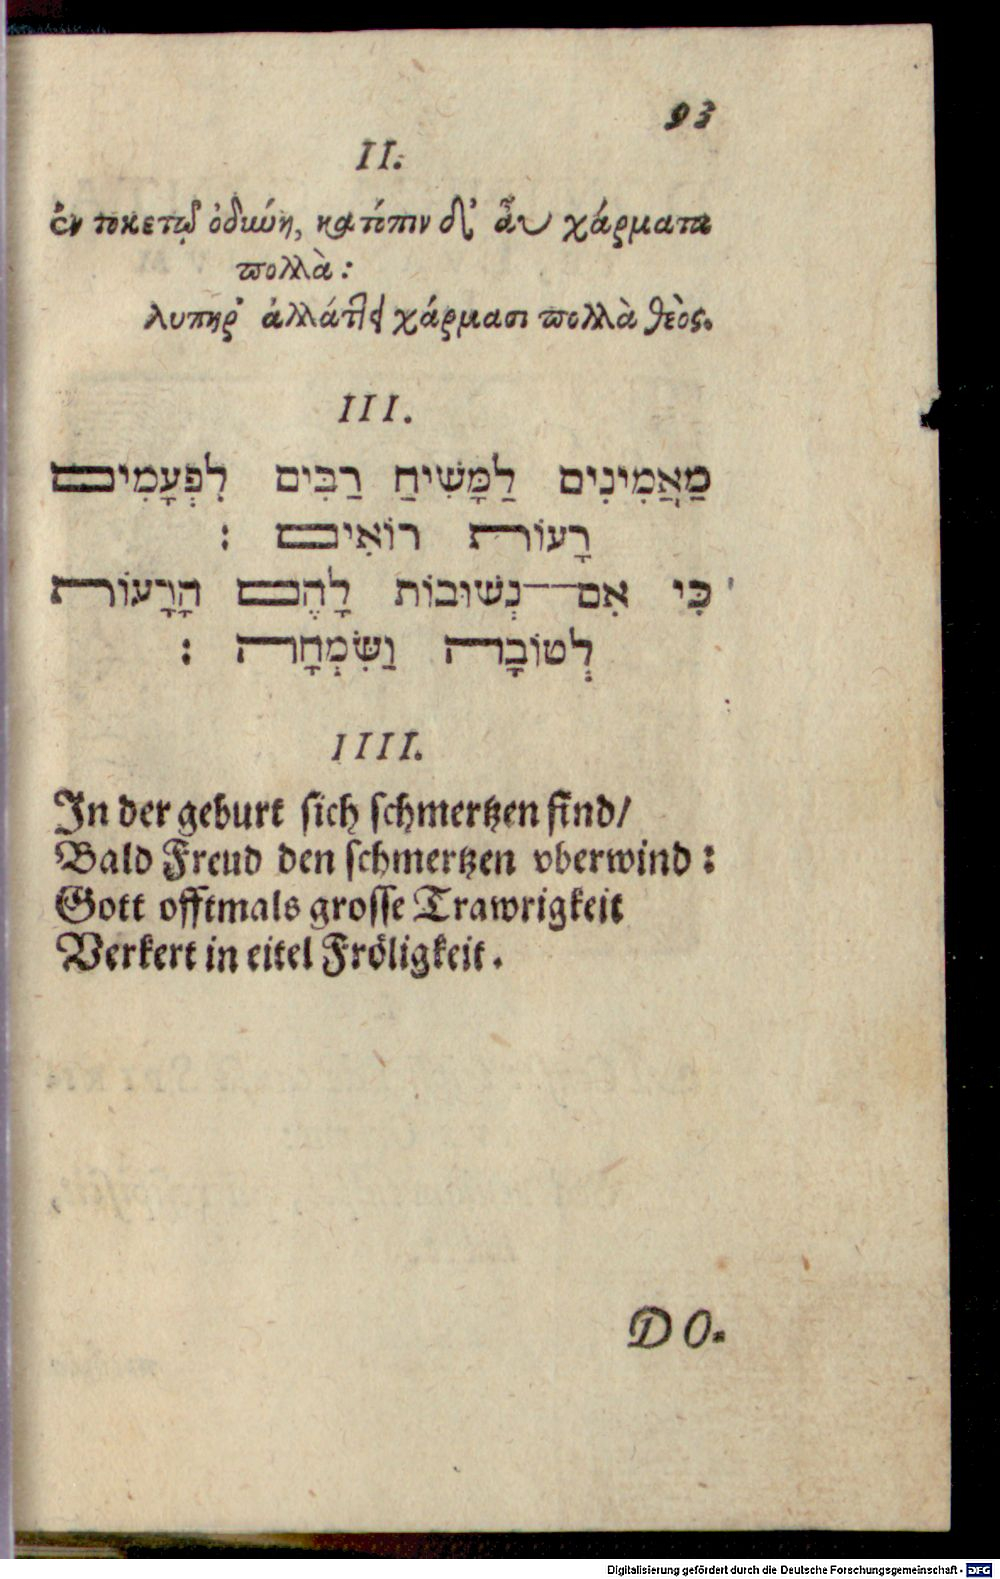 93
II.
ἐν τοκετῷ ὀδύνη, κατόπιν δ' αὖ χάρματα
πολλὰ:
λυπήρ' ἀλλάττει χάρμασι πολλὰ θεὸς.
III.
מַאֲמִינִים לַמָּשִׁיחַ רַבִּים לִפְעָמִים
רָעוֹת רוֹאִים :
כִּי אִם נְשׁוּבוֹת לָהֶם הָרָעוֹת
לְטוֹבָה וַשִּׂמְחָה :
IIII.
In der geburt sich schmertzen find/
Bald Freud den schmertzen vberwind:
Gott offtmals grosse Trawrigkeit
Verkert in eitel Fröligkeit.
DO.
Digitalisierung gefördert durch die Deutsche Forschungsgemeinschaft - DFG